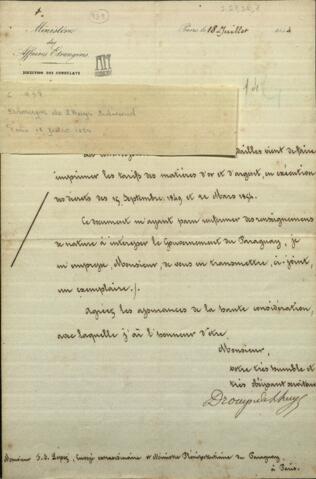 Ministère
des
Affaires Etrangères
DIRECTION DES CONSULATS
Paris, 18 Juillet 1854
Paris 18 Juillet 1854
médailles vient de faire
imprimer les tarifs des matières d'or et d'argent, en exécution
des décrets des 15 Septembre 1849 et 22 Mars 1854.
Ce document m'ayant paru renfermer des renseignemens
de nature à intéresser le Gouvernement du Paraguay, je
m'empresse, Monsieur, de vous en transmettre, ci-joint,
un exemplaire./.
Agréez les assurances de la haute considération,
avec laquelle j'ai l'honneur d'être,
Monsieur,
votre très humble et
très obéissant serviteur
Drouyn de Lhuys
Monsieur S. L. Lopez, Envoyé extraordinaire et Ministre Plénipotentiaire du Paraguay,
à Paris.